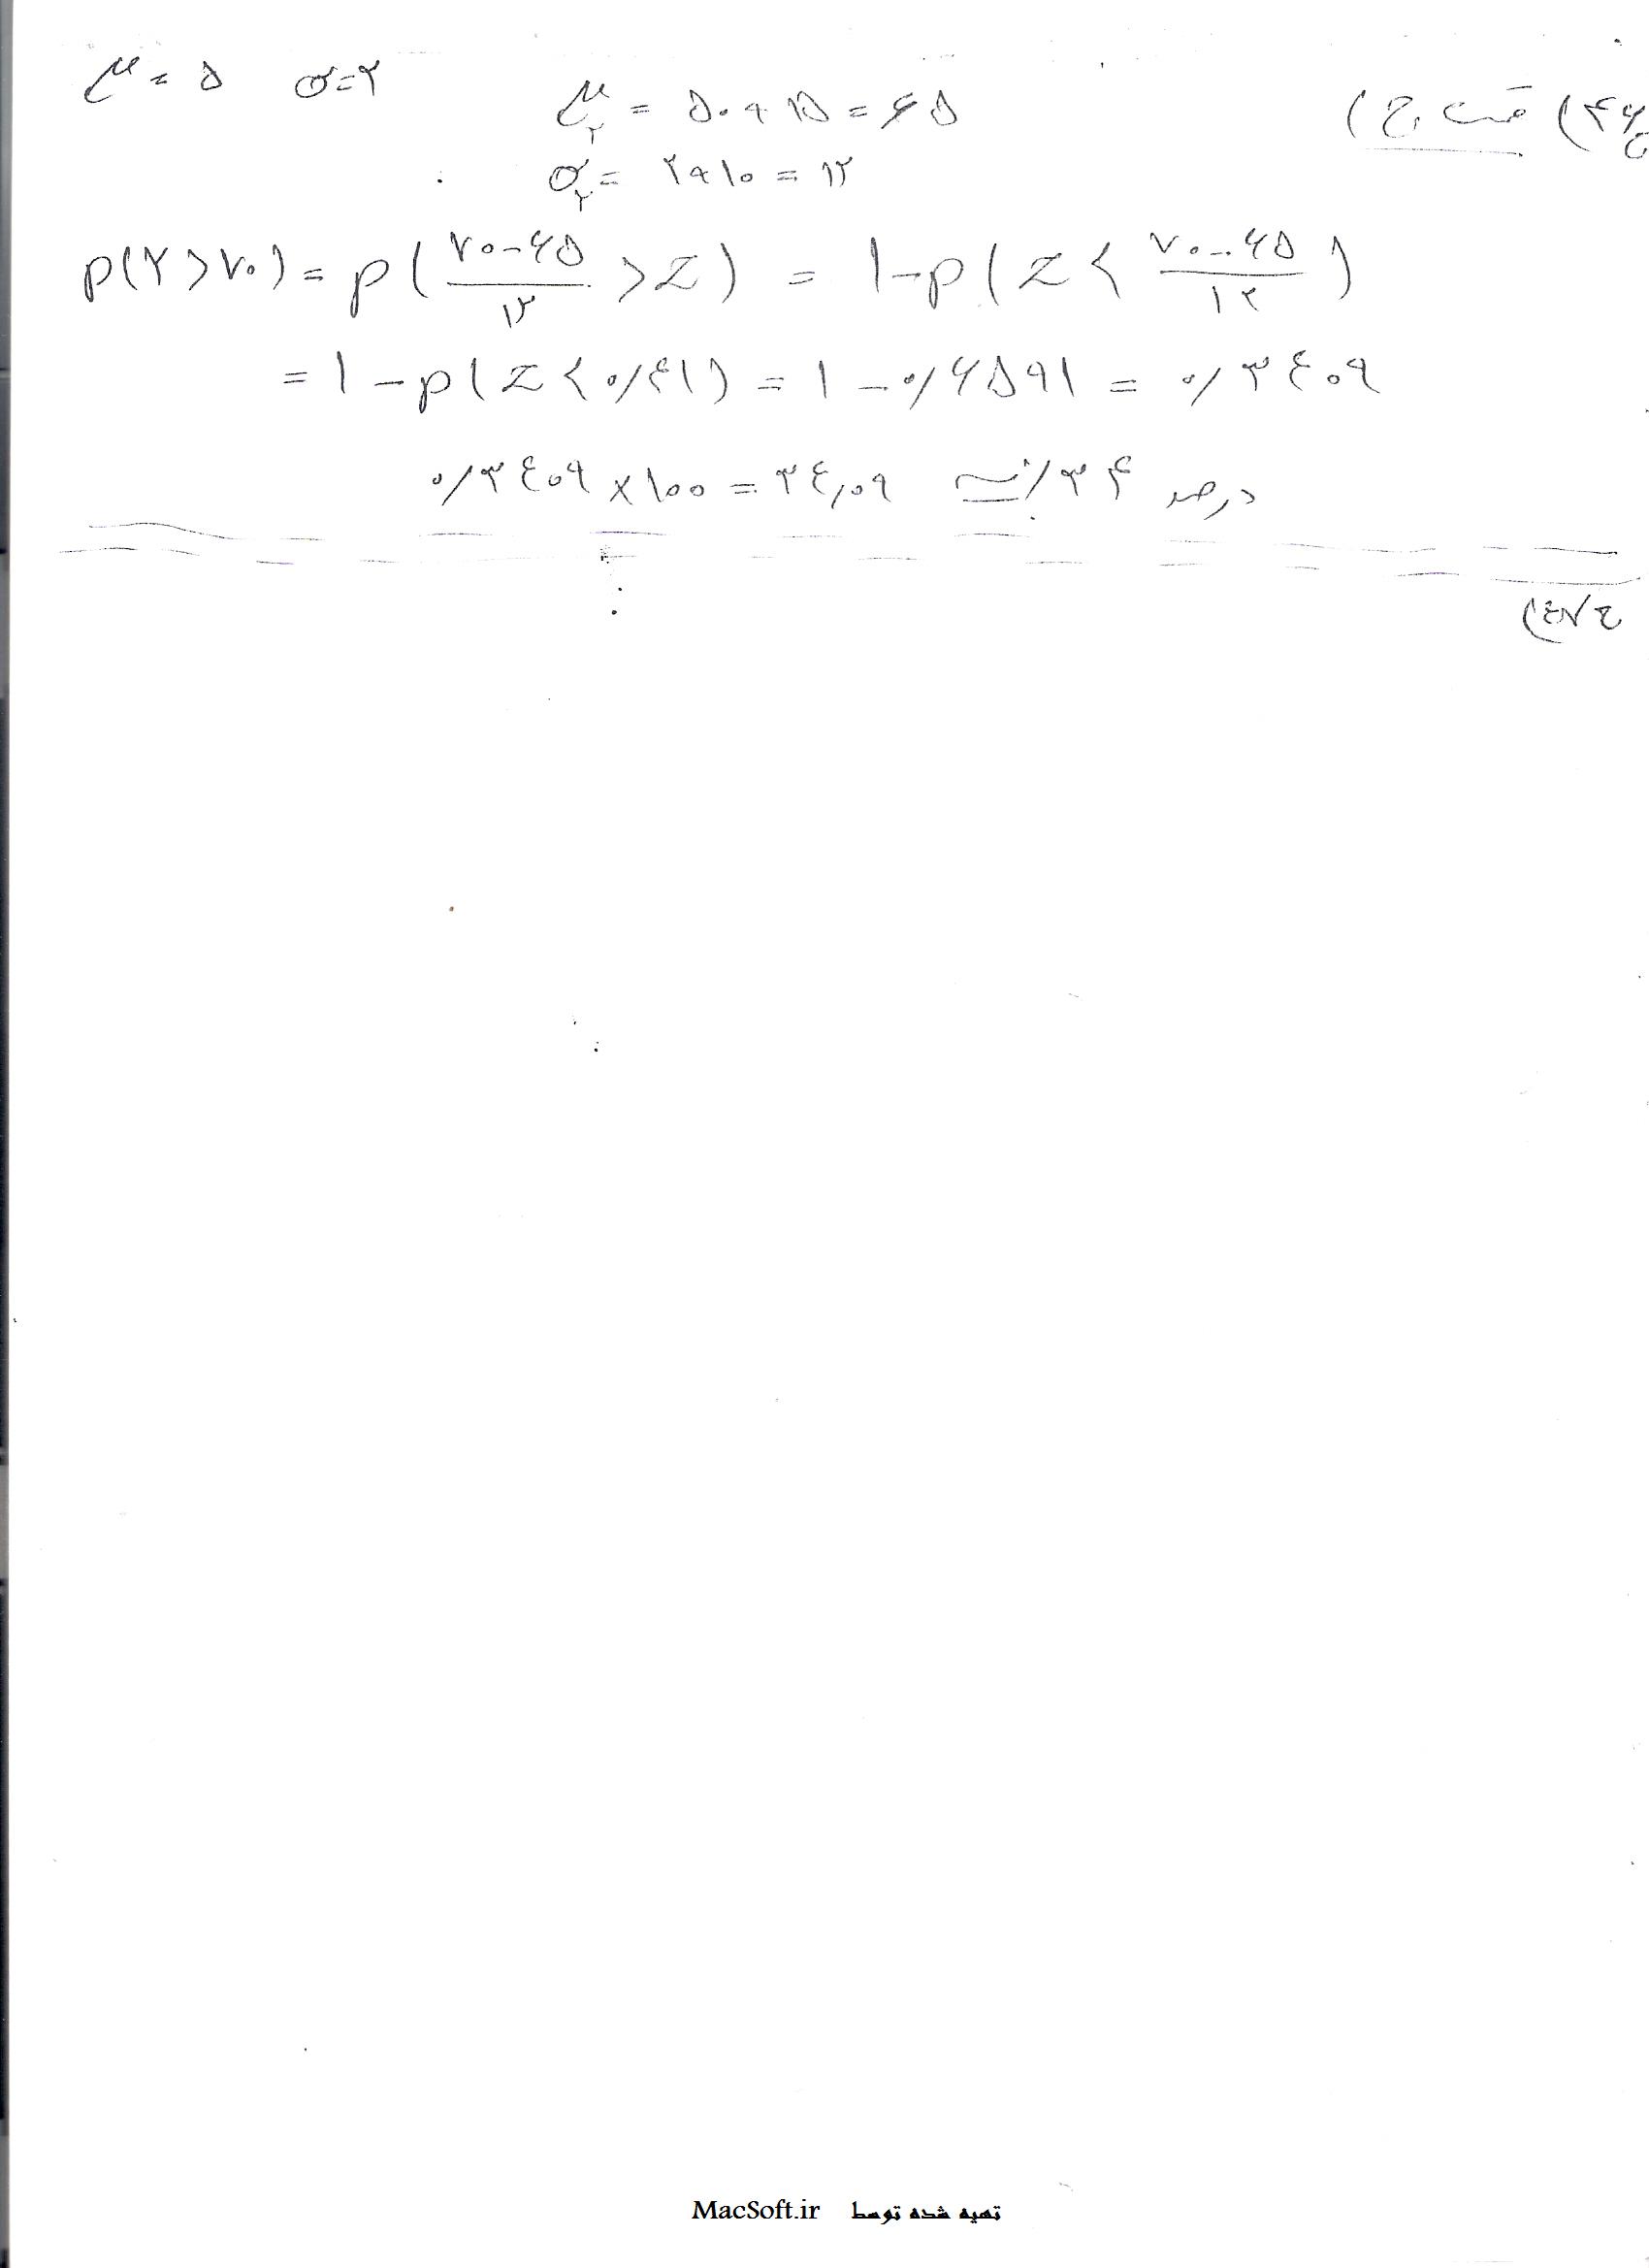 ج ۴۶) قسمت ج)
μ = ۵ σ = ۲ μ₂ = ۵۰ + ۱۵ = ۶۵
σ₂ = ۲ + ۱۰ = ۱۲
p(Y > ۷۰) = p(۷۰-۶۵/۱۲ > Z) = ۱ - p(Z < ۷۰-۶۵/۱۲)
= ۱ - p(Z < ۰/۴۱) = ۱ - ۰/۶۵۹۱ = ۰/۳۴۰۹
۰/۳۴۰۹ × ۱۰۰ = ۳۴,۰۹ ≃ ٪۳۴ درصد
ج ۴۷)
تهیه شده توسط MacSoft.ir